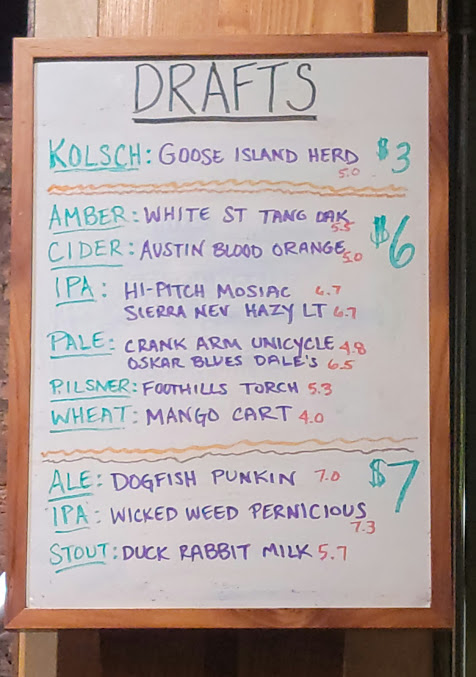 DRAFTS
KOLSCH: GOOSE ISLAND HERD $3
5.0
AMBER: WHITE ST TANG OAK 5.5
$6
CIDER: AUSTIN BLOOD ORANGE 5.0
IPA: HI-PITCH MOSIAC 6.7
SIERRA NEV HAZY LT 6.7
PALE: CRANK ARM UNICYCLE 4.8
OSKAR BLUES DALE'S 6.5
PILSNER: FOOTHILLS TORCH 5.3
WHEAT: MANGO CART 4.0
ALE: DOGFISH PUNKIN 7.0 $7
IPA: WICKED WEED PERNICIOUS
7.3
STOUT: DUCK RABBIT MILK 5.7